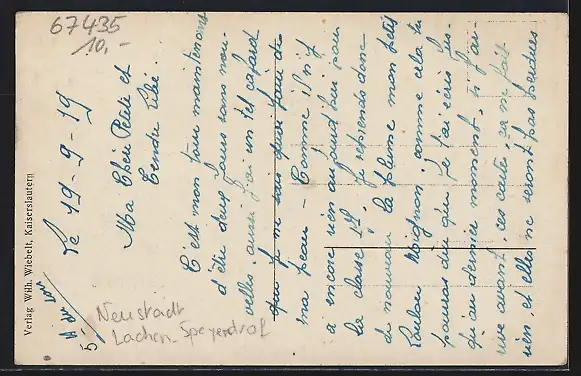 67435
10,-
le 19-9-19
Ma Chère Petite et
Tendre Bébé.
C'est mon tour maintenant
d'être deux jours sans nou-
velles, aussi j'ai un tel cafard
que je ne sais quoi faire de
ma peau - Comme il n'y
a encore rien aujourd'hui pour
la classe 19. Je reprends donc
de nouveau la plume mon petit
Loulou mignon, comme cela tu
pourras dire que je t'ai écris jus-
qu'au dernier moment, si j'ar-
rive avant ces carte, ça ne fait
rien, et elles ne seront pas perdues
Verlag Wilh. Wiebelt, Kaiserslautern
5
Neustadt
Lachen-Speyerdorf